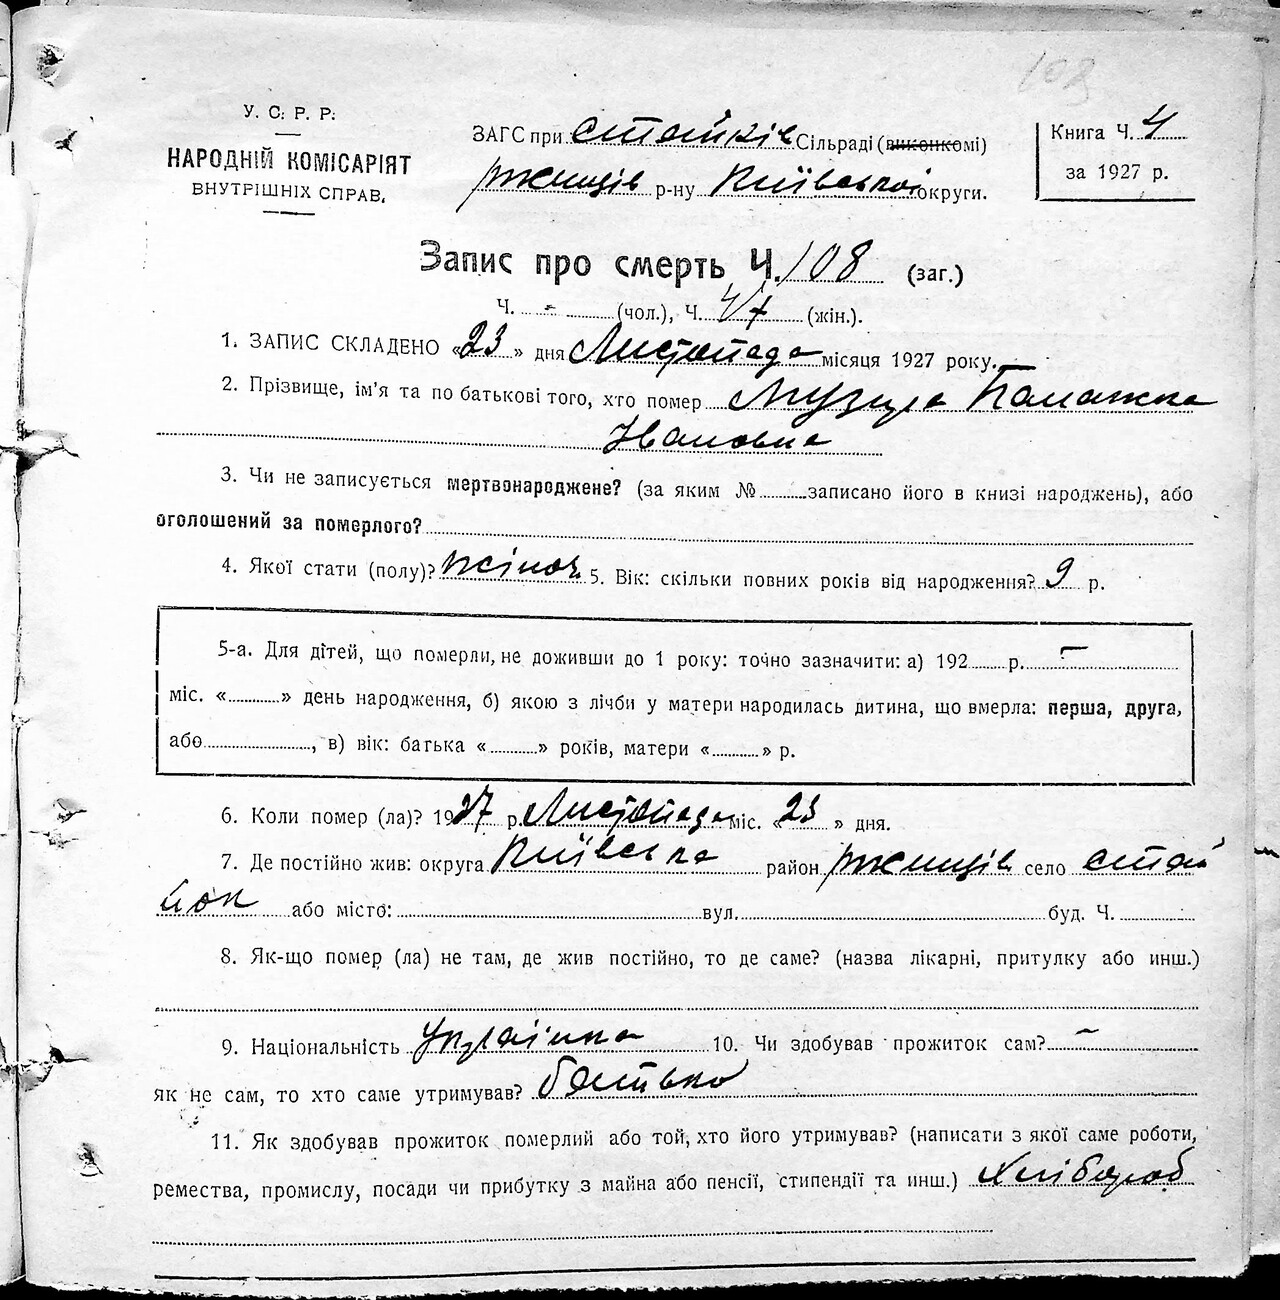 108
У. С. Р. Р.
НАРОДНІЙ КОМІСАРІЯТ
ВНУТРІШНІХ СПРАВ.
ЗАГС при Стайків Сільраді (виконкомі)
Ржищів р-ну Київської округи.
Книга Ч. 4
за 1927 р.
Запис про смерть Ч. 108 (заг.)
Ч. - (чол.), Ч. 47 (жін.).
1. ЗАПИС СКЛАДЕНО «23» дня Листопада місяця 1927 року.
2. Прізвище, ім'я та по батькові того, хто помер Музира
Івановна
3. Чи не записується мертвонароджене? (за яким № записано його в книзі народжень), або
оголошений за померлого?
4. Якої стати (полу)? жіноч. 5. Вік: скільки повних років від народження? 9 р.
5-а. Для дітей, що померли, не доживши до 1 року: точно зазначити: а) 192 р. —
міс. « » день народження, б) якою з лічби у матери народилась дитина, що вмерла: перша, друга,
або , в) вік: батька « » років, матери « » р.
6. Коли помер (ла)? 1927 р. Листопада міс. «23» дня.
7. Де постійно жив: округа Київська район Ржищів село Стай
йок або місто: вул. буд. Ч.
8. Як-що помер (ла) не там, де жив постійно, то де саме? (назва лікарні, притулку або инш.)
9. Національність Українка 10. Чи здобував прожиток сам? —
як не сам, то хто саме утримував? батько
11. Як здобував прожиток померлий або той, хто його утримував? (написати з якої саме роботи,
ремества, промислу, посади чи прибутку з майна або пенсії, стипендії та инш.) Хлібороб